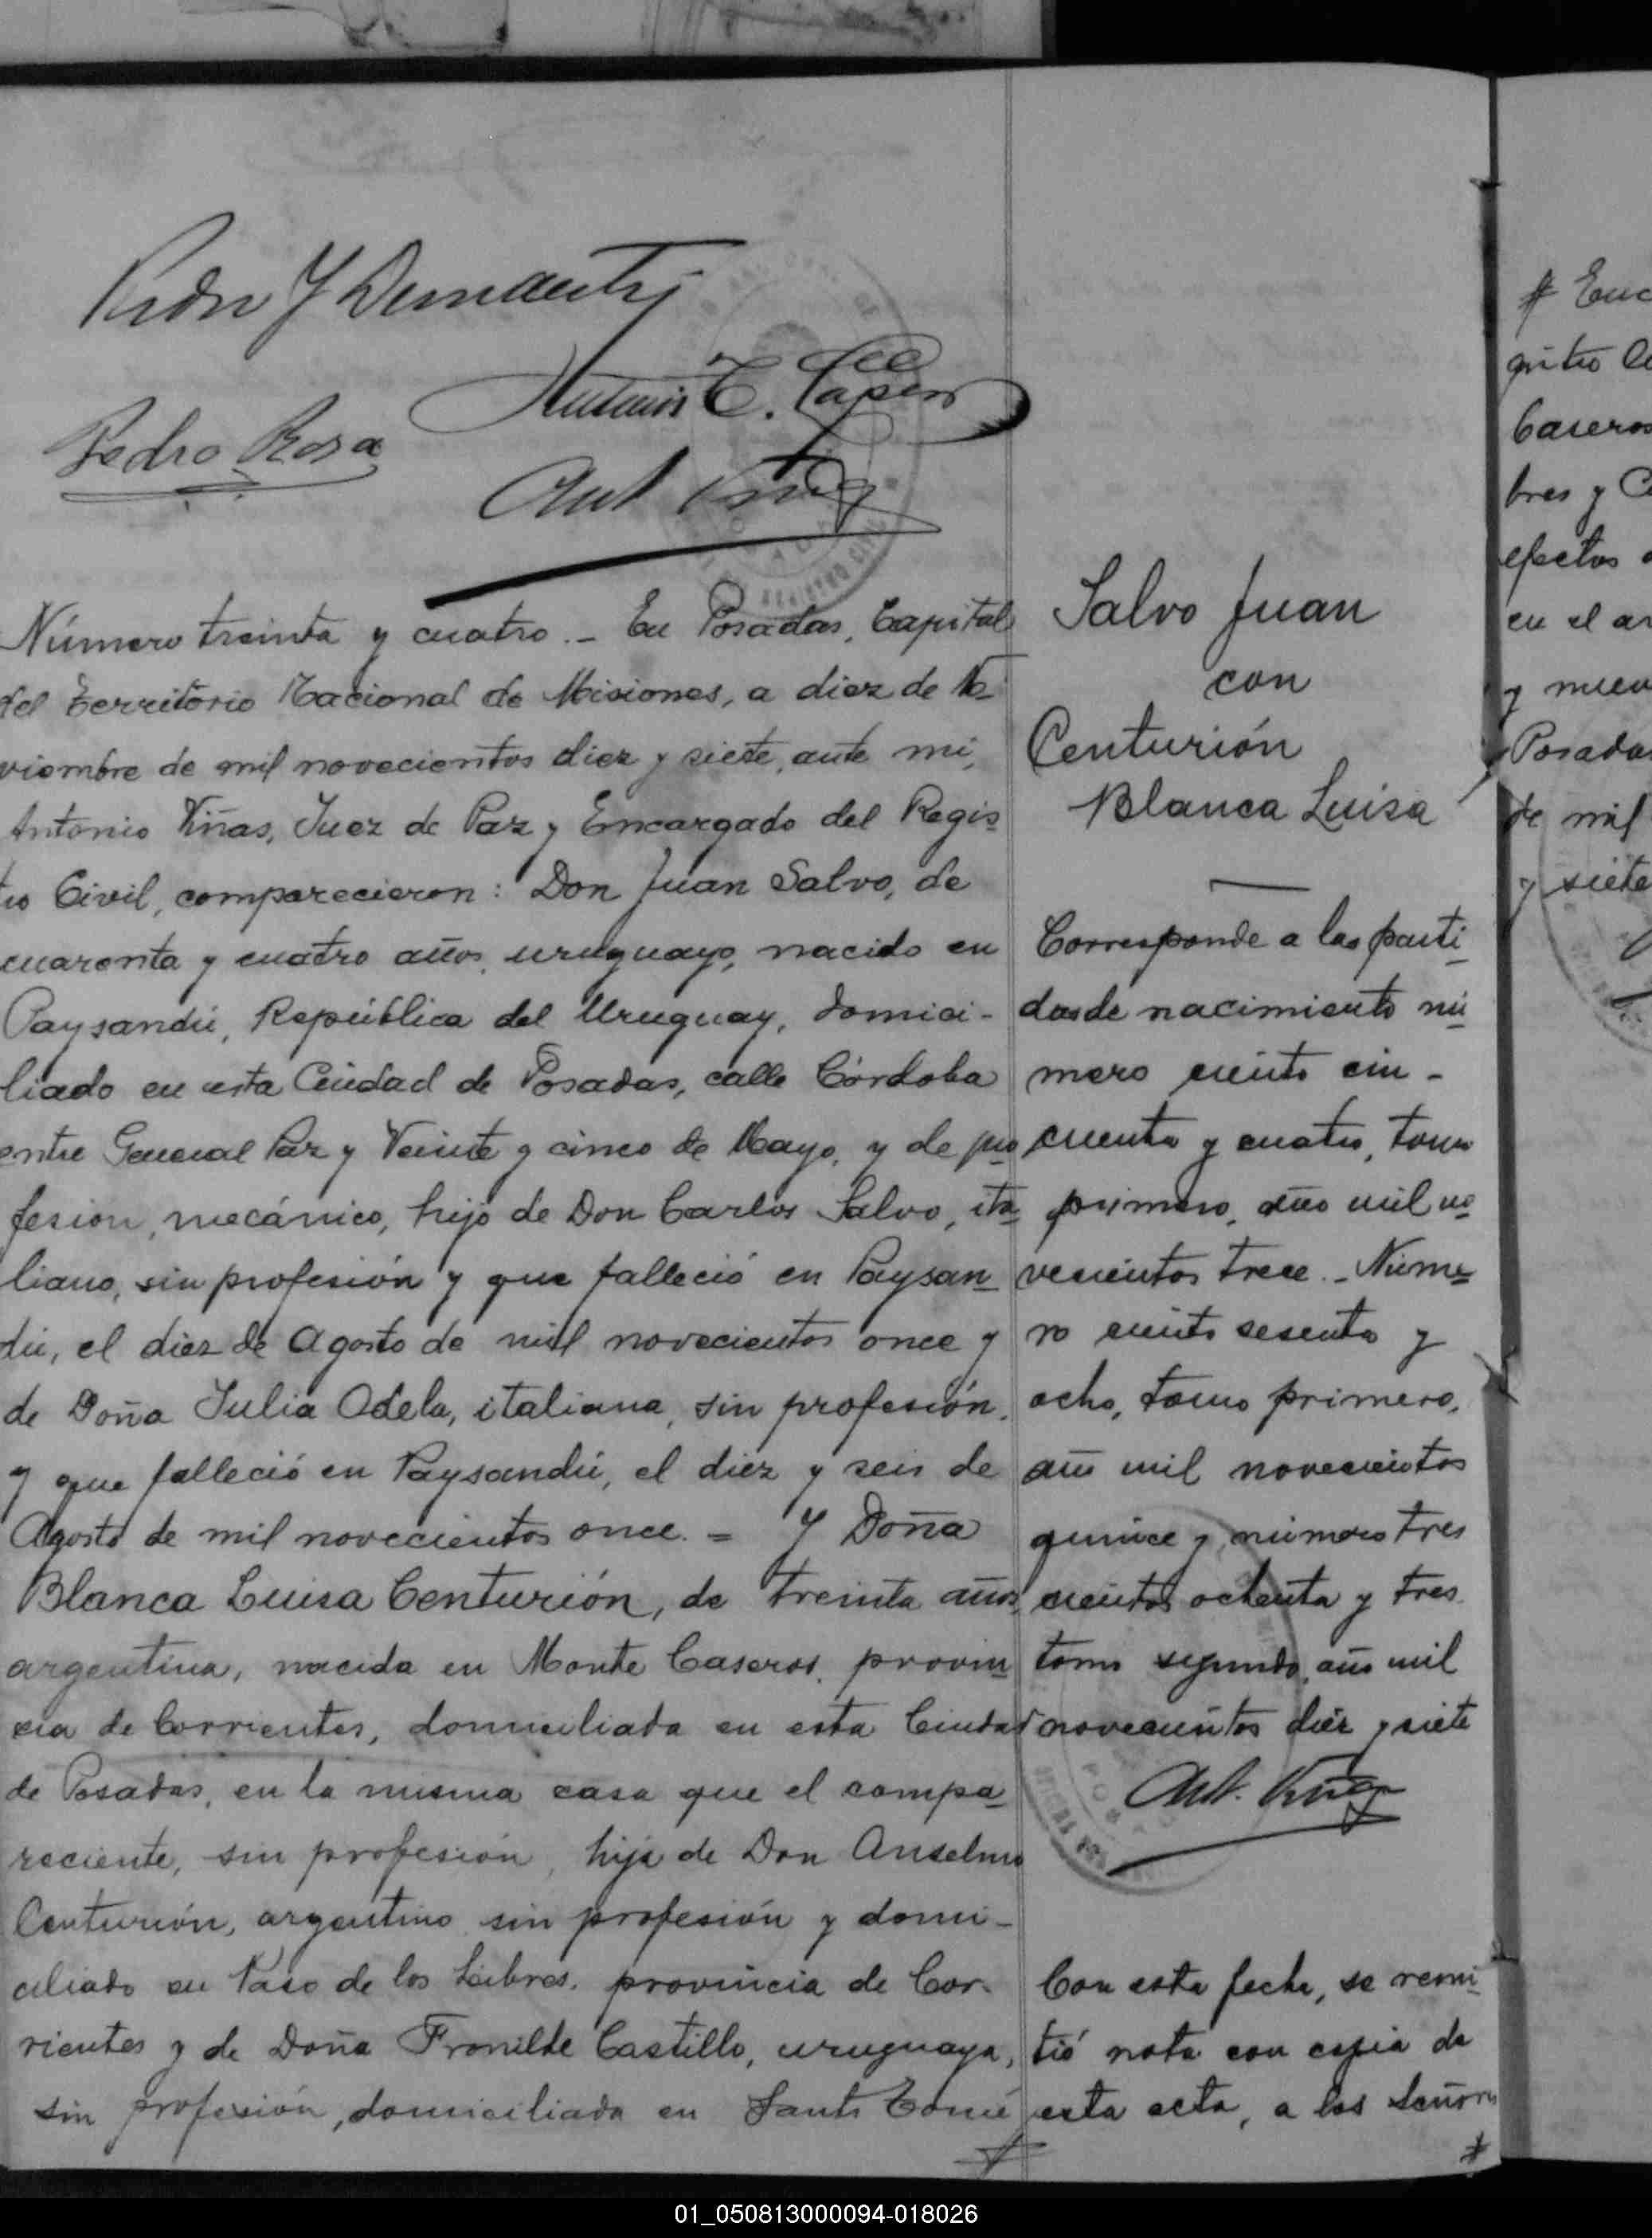 Pedro Rosa
Número treinta y cuatro. - En Posadas, Capital
del Territorio Nacional de Misiones, a diez de No
viembre de mil novecientos diez y siete, ante mi,
Antonio Viñas, Juez de Paz y Encargado del Regis
tro Civil, comparecieron: Don Juan Salvo, de
cuarenta y cuatro años, uruguayo, nacido en
Paysandú, República del Uruguay, domici-
liado en esta Ciudad de Posadas, calle Córdoba
entre General Paz y Veinte y cinco de Mayo, y de pro
fesion, mecánico, hijo de Don Carlos Salvo, ita
liano, sin profesión y que falleció en Paysan
dú, el diez de Agosto de mil novecientos once y
de Doña Julia Odela, italiana, sin profesión,
y que falleció en Paysandú, el diez y seis de
Agosto de mil novecientos once. = Y Doña
Blanca Luisa Centurión, de treinta años,
argentina, nacida en Monte Caseros, provin
cia de Corrientes, domiciliada en esta Ciudad
de Posadas, en la misma casa que el compa
reciente, sin profesión, hija de Don Anselmo
Centurión, argentino sin profesión y domi-
ciliado en Paso de los Libres, provincia de Cor-
rientes y de Doña Fronilde Castillo, uruguaya,
sin profesión, domiciliada en Santo Tomé
Salvo Juan
con
Centurión
Blanca Luisa
Corresponde a las parti
das de nacimiento nú
mero ciento cin-
cuenta y cuatro, tomo
primero, año mil no
vecientos trece. - Núme
ro ciento sesenta y
ocho, tomo primero,
año mil novecientos
quince y número tres
cientos ochenta y tres
tomo segundo, año mil
novecientos diez y siete
Ant. Viñas
Con esta fecha, se remi
tió nota con copia de
esta acta, a los Señores
Caseros
bres y
efectos
en el
y
Posadas
de mil
y siete
01_050813000094-018026